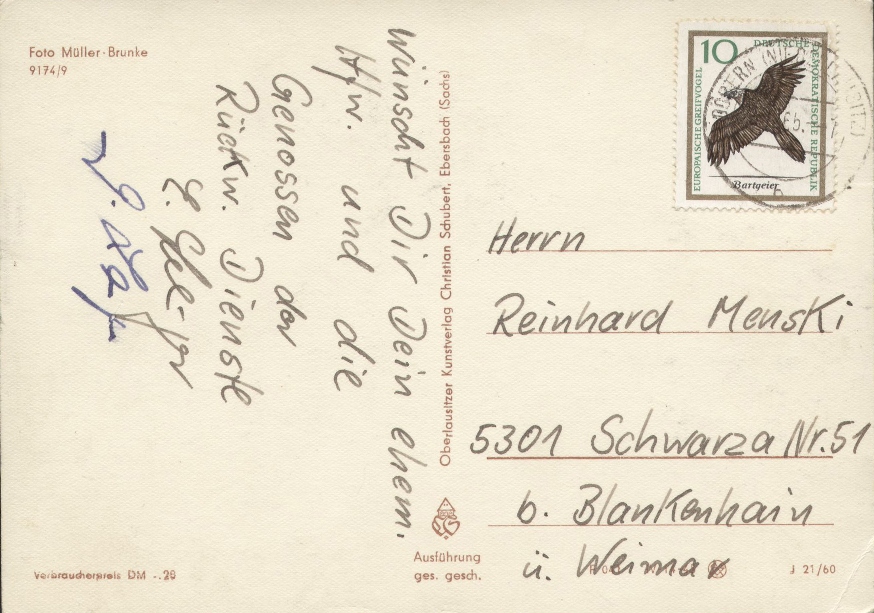 Foto Müller·Brunke
9174/9
wünscht Dir Dein ehem.
Hfw. und die
Genossen der
Rückw. Dienste
Verbraucherpreis DM -.20
Oberlausitzer Kunstverlag Christian Schubert, Ebersbach (Sachs)
Ausführung
ges. gesch.
10
DEUTSCHE DEMOKRATISCHE REPUBLIK
EUROPÄISCHE GREIFVÖGEL
Bartgeier
Herrn
Reinhard Menski
5301 Schwarza Nr. 51
b. Blankenhain
ü. Weimar
J 21/60